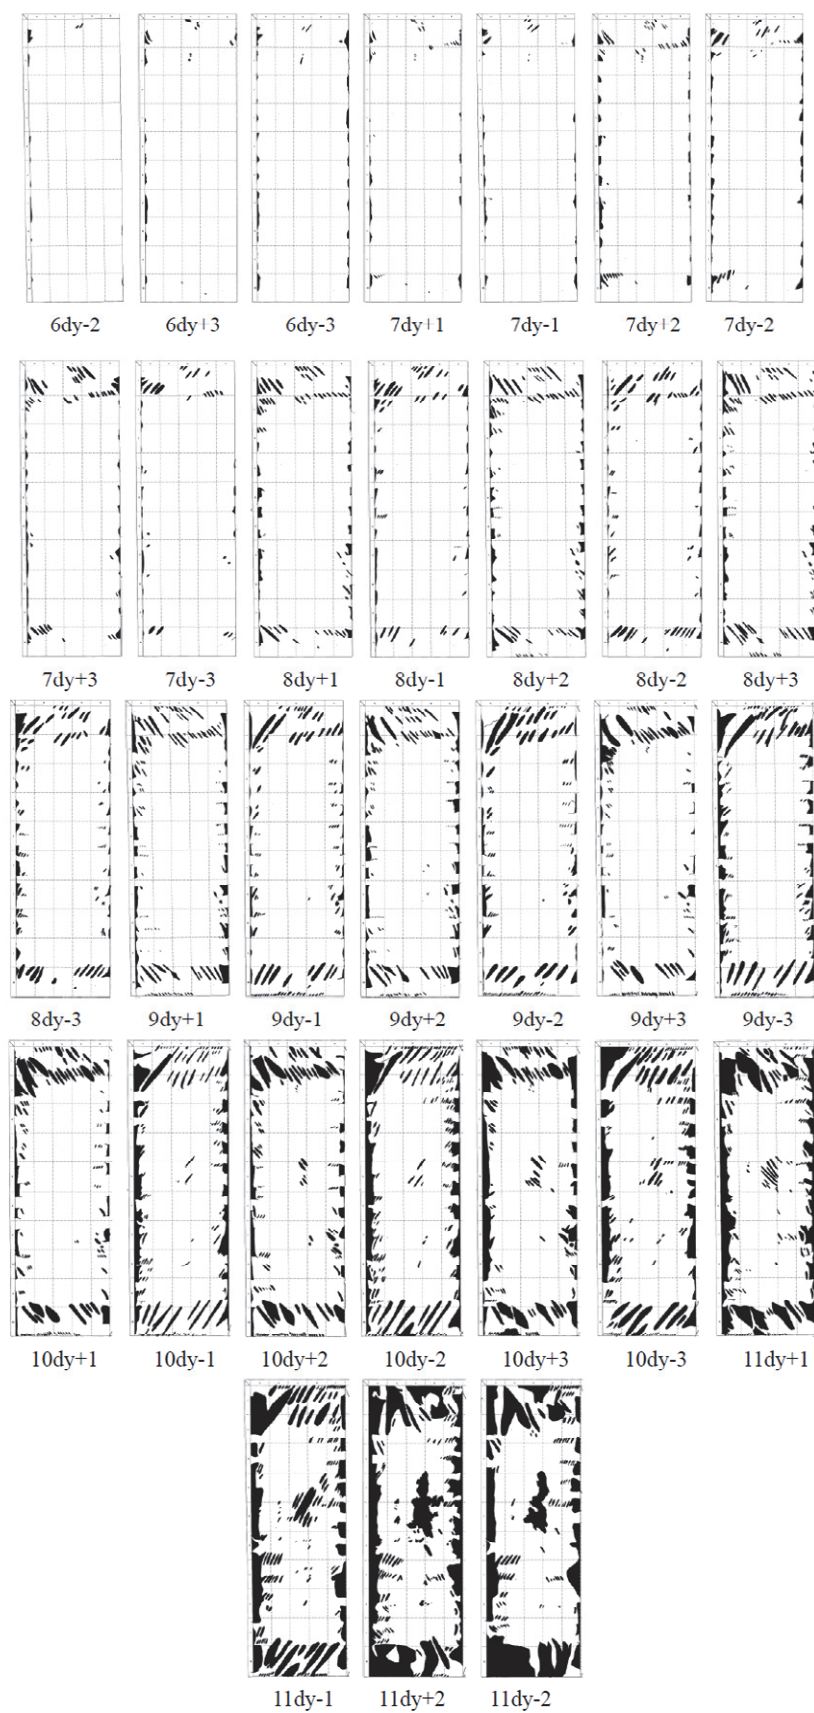 6dy-2 6dy+3 6dy-3 7dy+1 7dy-1 7dy+2 7dy-2
7dy+3 7dy-3 8dy+1 8dy-1 8dy+2 8dy-2 8dy+3
8dy-3 9dy+1 9dy-1 9dy+2 9dy-2 9dy+3 9dy-3
10dy+1 10dy-1 10dy+2 10dy-2 10dy+3 10dy-3 11dy+1
11dy-1 11dy+2 11dy-2